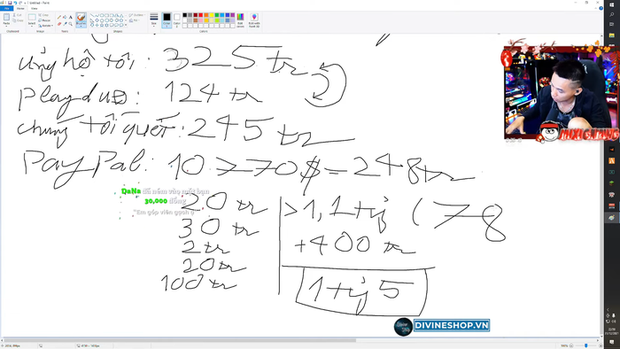 ủng hộ tôi: 325 tr
playduo: 124 tr
chúng tôi quét: 245 tr
PayPal: 10770$ = 248 tr
DaNa đã ném vào mặt bạn
30,000 đồng
20 tr
30 tr
2 tr
20 tr
100 tr
> 1,1 tỷ (78
+400 tr
1 tỷ 5
DIVINESHOP.VN